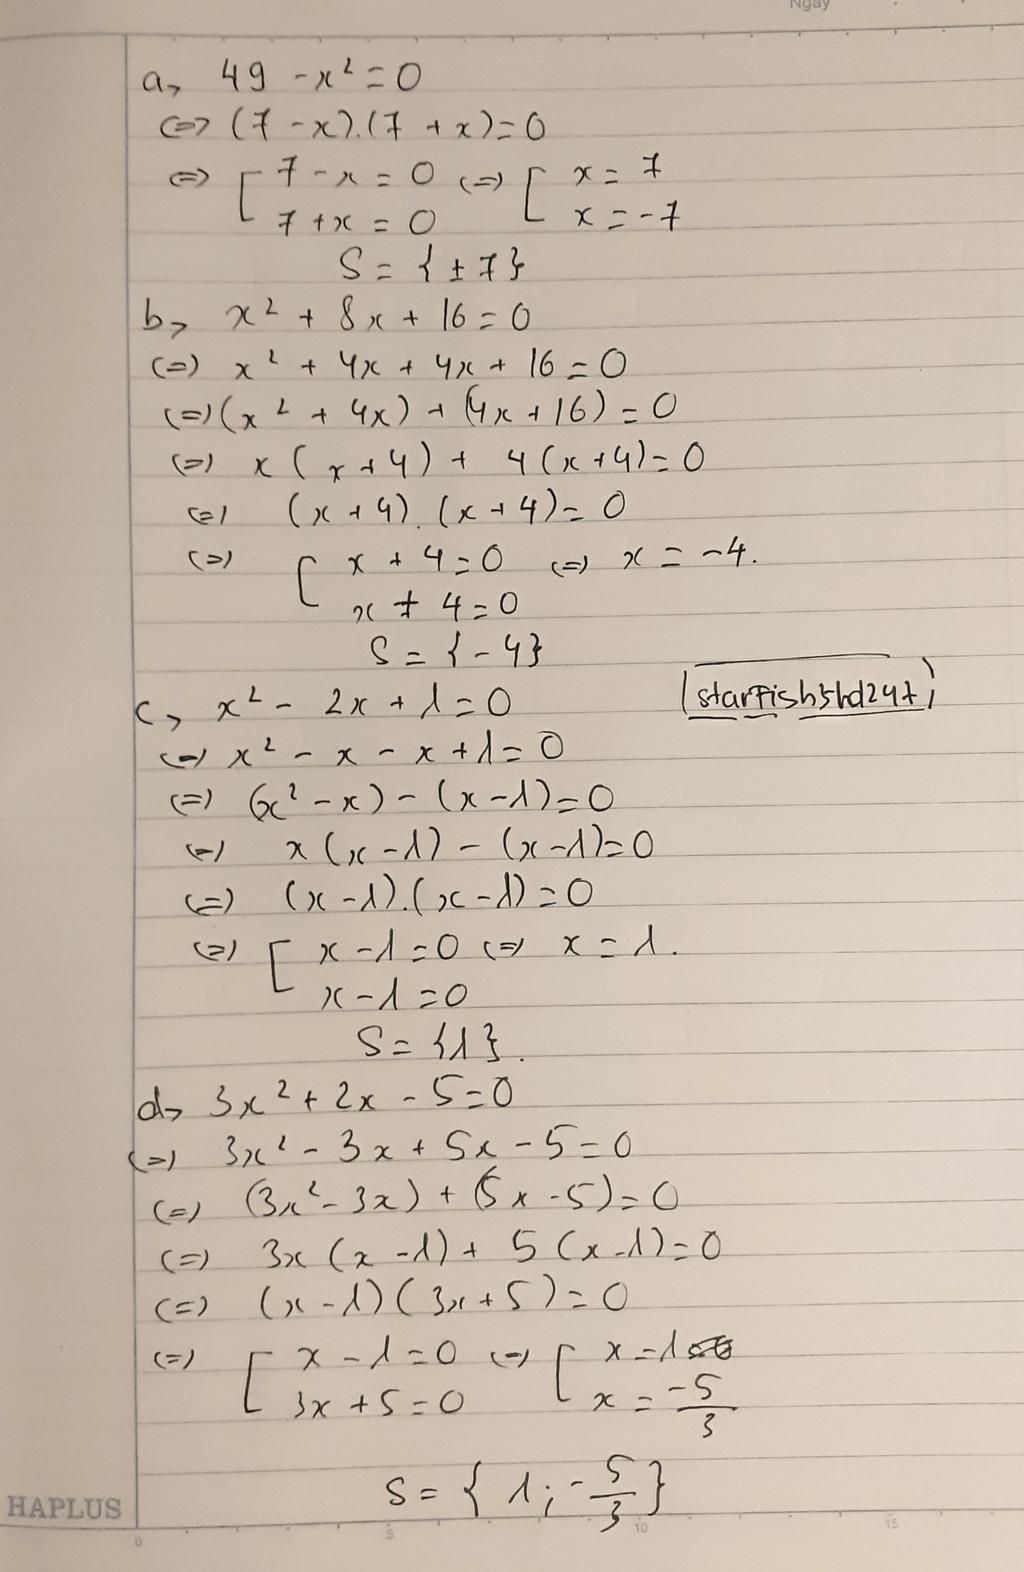 Ngày
a, 49 - x² = 0
<=> (7 - x).(7 + x) = 0
<=> [ 7 - x = 0 <=> [ x = 7
7 + x = 0 x = -7
S = { ± 7 }
b, x² + 8x + 16 = 0
<=> x² + 4x + 4x + 16 = 0
<=> (x² + 4x) + (4x + 16) = 0
<=> x (x + 4) + 4 (x + 4) = 0
<=> (x + 4).(x + 4) = 0
<=> [ x + 4 = 0 <=> x = -4.
x + 4 = 0
S = { -4 }
c, x² - 2x + 1 = 0
starfish5hd247
<=> x² - x - x + 1 = 0
<=> (x² - x) - (x - 1) = 0
<=> x (x - 1) - (x - 1) = 0
<=> (x - 1).(x - 1) = 0
<=> [ x - 1 = 0 <=> x = 1.
x - 1 = 0
S = {1}.
d, 3x² + 2x - 5 = 0
<=> 3x² - 3x + 5x - 5 = 0
<=> (3x² - 3x) + (5x - 5) = 0
<=> 3x (x - 1) + 5 (x - 1) = 0
<=> (x - 1) (3x + 5) = 0
<=> [ x - 1 = 0 <=> [ x = 1
3x + 5 = 0 x = -5/3
S = { 1; -5/3 }
HAPLUS
0 5 10 15